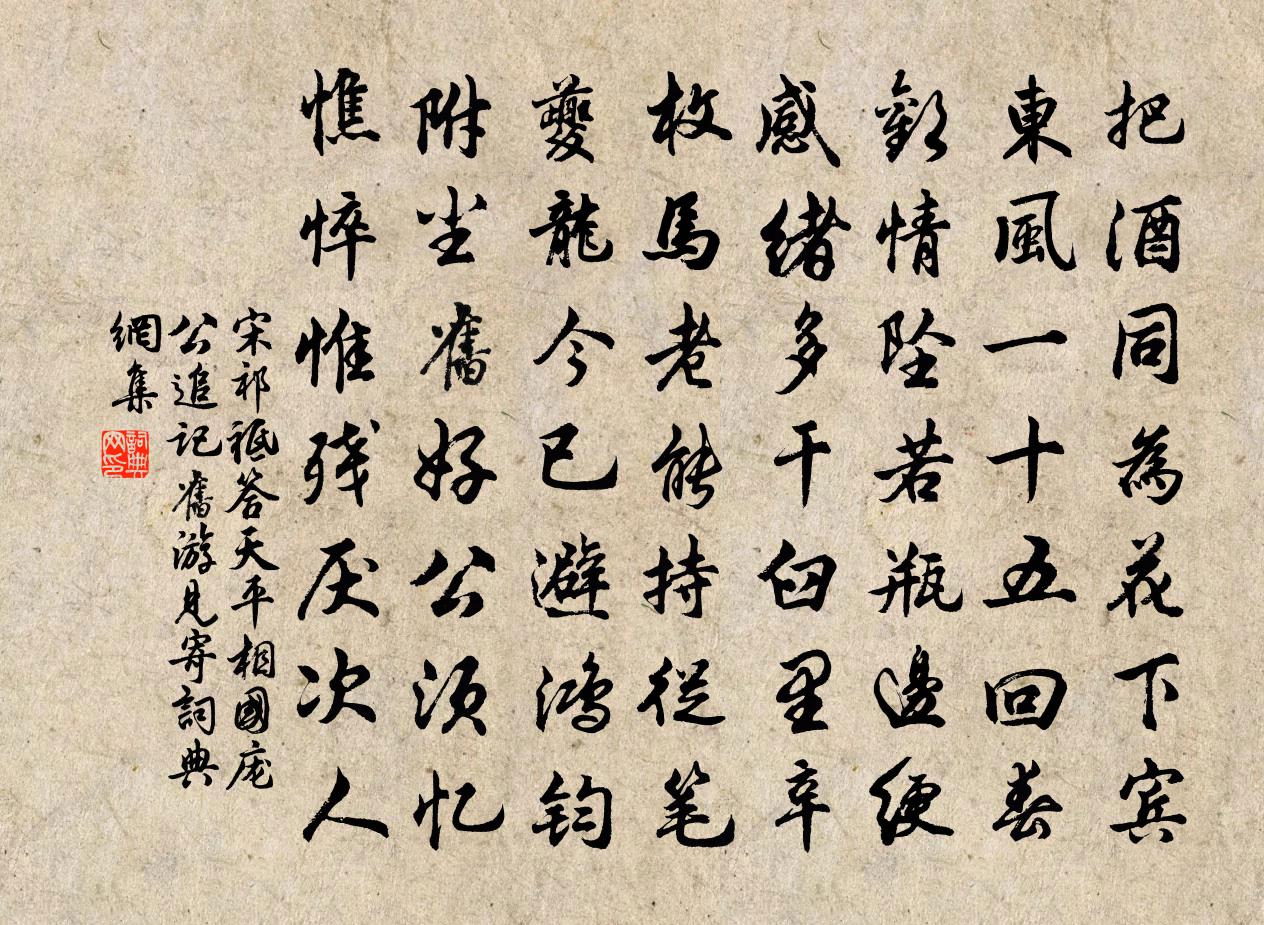 把酒同為花下賓
東風一十五回春
歡情坠若瓶邊綆
感緒多干臼里辛
枚馬老能持從笔
夔龍今已避鴻鈞
附尘舊好公須忆
憔悴惟残厌次人
宋祁祗答天平相國庞
公追記舊游見寄詞典
網集
詞典网印